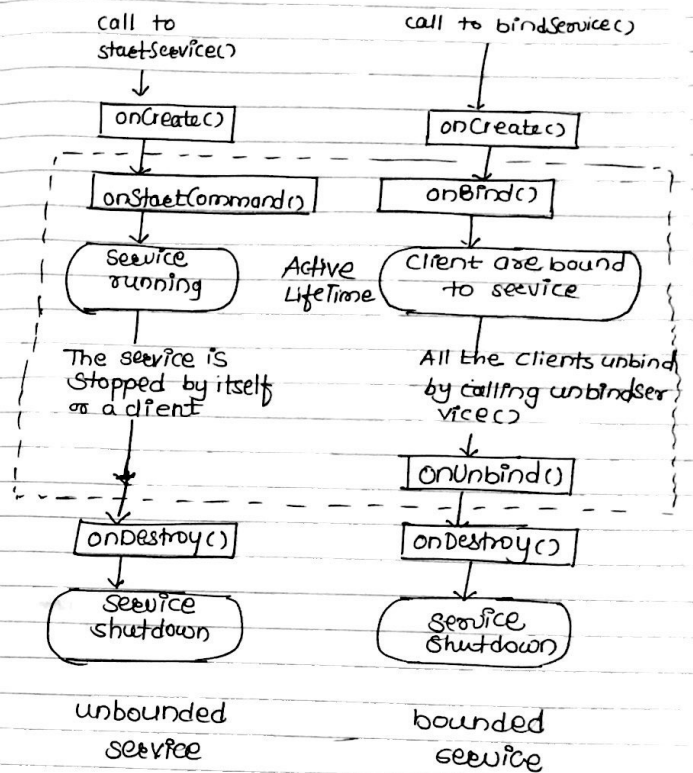 call to
startService()
onCreate()
onStartCommand()
Service
running
The service is
Stopped by itself
or a client
onDestroy()
Service
shutdown
unbounded
service
Active
LifeTime
call to bindService()
onCreate()
onBind()
Client are bound
to service
All the clients unbind
by calling unbindSer
vice()
onUnbind()
onDestroy()
Service
Shutdown
bounded
service